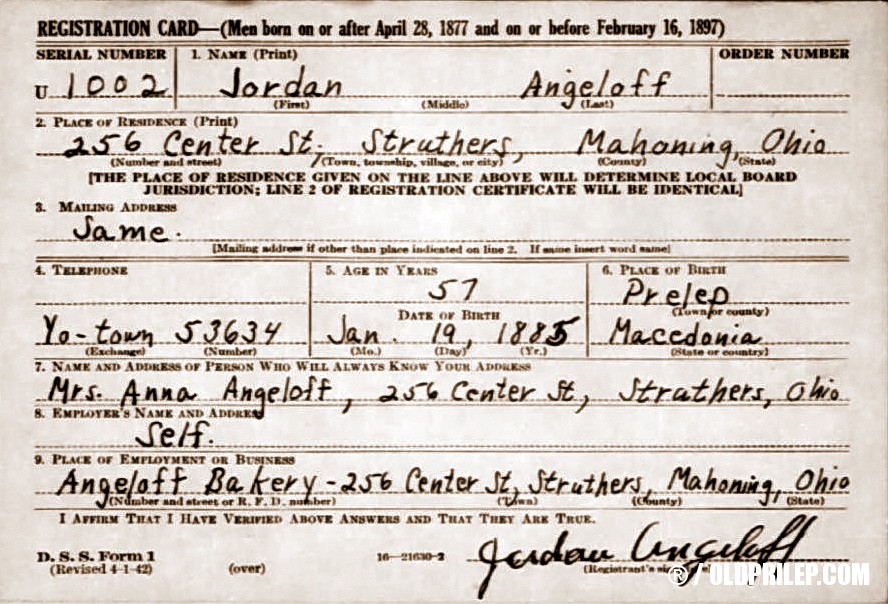 REGISTRATION CARD—(Men born on or after April 28, 1877 and on or before February 16, 1897)
SERIAL NUMBER 1. NAME (Print) ORDER NUMBER
U 1002 Jordan Angeloff
(First) (Middle) (Last)
2. PLACE OF RESIDENCE (Print)
256 Center St, Struthers, Mahoning, Ohio
(Number and street) (Town, township, village, or city) (County) (State)
[THE PLACE OF RESIDENCE GIVEN ON THE LINE ABOVE WILL DETERMINE LOCAL BOARD
JURISDICTION; LINE 2 OF REGISTRATION CERTIFICATE WILL BE IDENTICAL]
3. MAILING ADDRESS
Same.
[Mailing address if other than place indicated on line 2. If same insert word same]
4. TELEPHONE 5. AGE IN YEARS 6. PLACE OF BIRTH
57 Prelep
DATE OF BIRTH (Town or county)
Yo-town 53634 Jan. 19, 1885 Macedonia
(Exchange) (Number) (Mo.) (Day) (Yr.) (State or country)
7. NAME AND ADDRESS OF PERSON WHO WILL ALWAYS KNOW YOUR ADDRESS
Mrs. Anna Angeloff, 256 Center St, Struthers, Ohio
8. EMPLOYER'S NAME AND ADDRESS
Self.
9. PLACE OF EMPLOYMENT OR BUSINESS
Angeloff Bakery - 256 Center St, Struthers, Mahoning, Ohio
(Number and street or R. F. D. number) (Town) (County) (State)
I AFFIRM THAT I HAVE VERIFIED ABOVE ANSWERS AND THAT THEY ARE TRUE.
D. S. S. Form 1 16—21630-2 Jordan Angeloff
(Revised 4-1-42) (over) (Registrant's
® / OLDPRILEP.COM